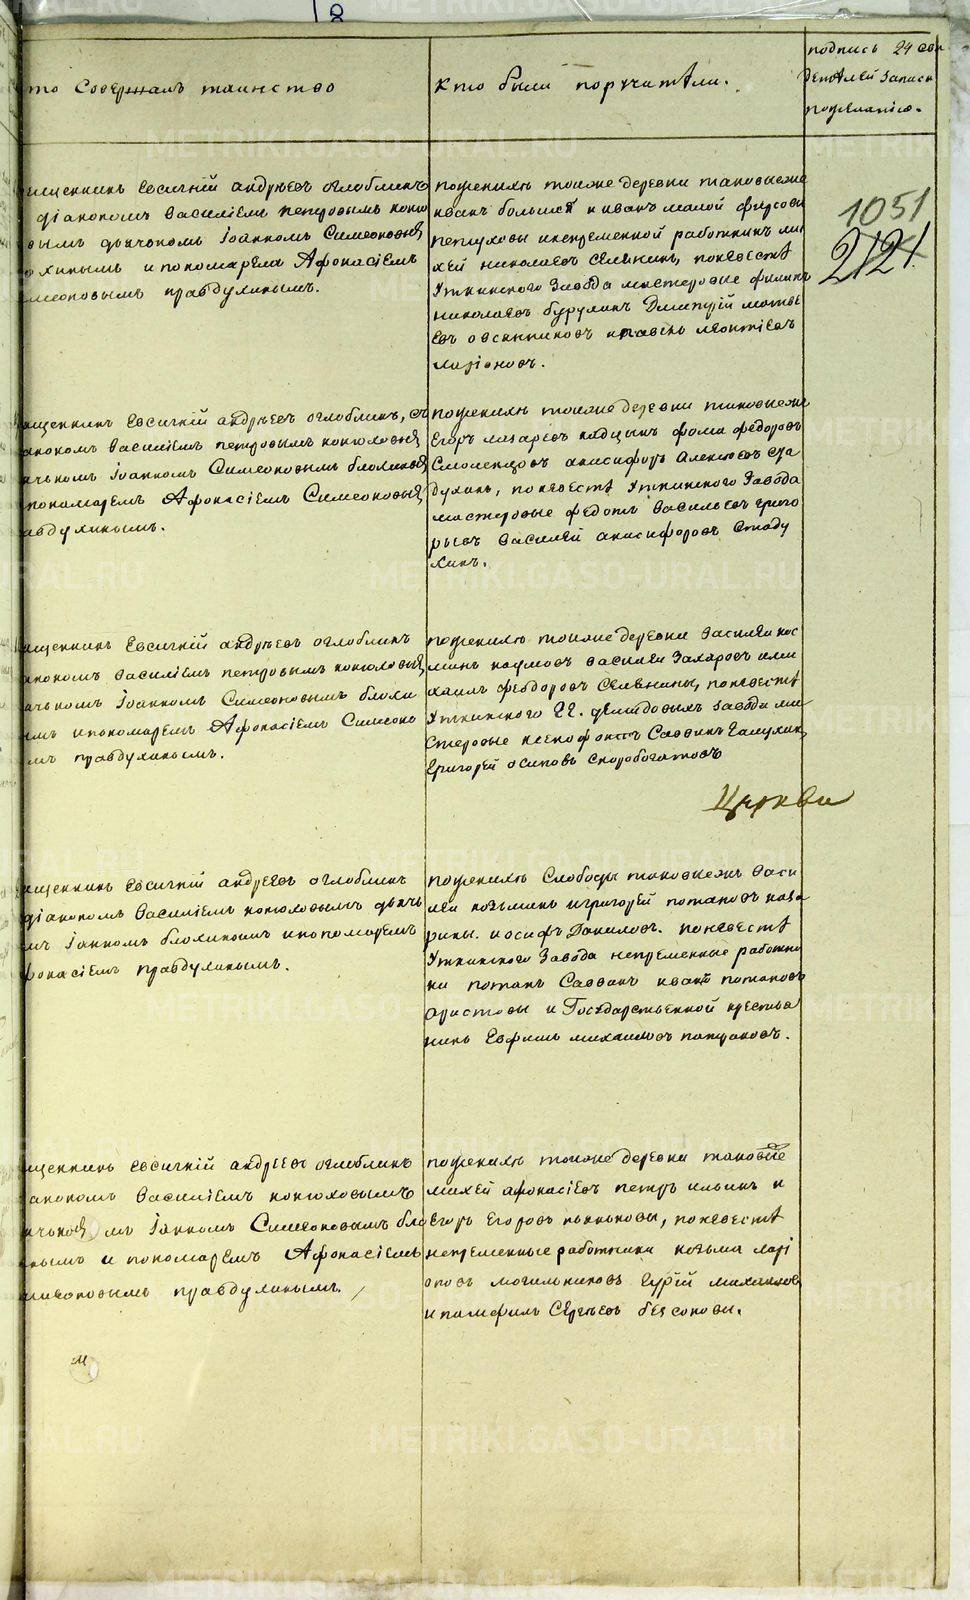 то Совершалъ таинство
кто были поручители.
подпись 24 сви
детелей записи
по желанію.
1051
2121
ященникъ Евсигній андрѣевъ оглоблинъ
діакономъ Василіемъ петровымъ коню
вымъ дьячкомъ Іоанномъ Симеоновымъ
охинымъ и пономаремъ Афонасіемъ
имеоновымъ правдухинымъ.
по женихѣ тоиже деревни таковыеже
иванъ большей и иванъ малой фирсовы
петуховы инепременной работникъ ми
хей николаевъ Селянинъ, по невестѣ
Уткинского Завода мастеровые филипъ
николаевъ бурухинъ Дмитрій матве
евъ овсянниковъ и павелъ леонтіевъ
ларіоновъ.
ященникъ Евсигній андрѣевъ оглоблинъ, съ
аконом Василіемъ петровымъ конюховым
ячкомъ Іоанномъ Симеоновымъ блохиным
пономаремъ Афонасіемъ Симеоновым
авдухинымъ.
по женихѣ тоиже деревни таковыеже
Егоръ лазаревъ фома федоровъ
Смоленцовъ анисифоръ Алексеевъ ста
духинъ, по невестѣ Уткинского Завода
мастеровые федотъ Васильевъ григо
рьевъ Василей анисифоровъ Стаду
хинъ.
ященникъ Евсигній андрѣевъ оглоблинъ
аконом Василіемъ петровымъ конюховым
ячкомъ Іоанномъ Симеоновымъ блохи
ымъ и пономаремъ Афонасіемъ Симеоно
мъ правдухинымъ.
по женихѣ тоиже деревни Василей кос
минъ наумовъ Василей Захаровъ и ми
хаилъ феодоровъ Селянины, по невестѣ
Уткинского ГГ. демидовыхъ завода ма
стеровые ксенофонтъ Саввинъ Галухин,
Григорей осиповъ Скоробогатовъ
Церкви
ященникъ Евсигній андрѣевъ оглоблинъ
діакономъ Василіемъ конюховымъ дьячк
мъ Іанномъ блохинымъ и пономаремъ
фонасіемъ правдухинымъ.
по женихѣ Слободы таковыежъ Васи
лей козьминъ и григорей потаповъ каза
рины. иосифъ Даниловъ. по невестѣ
Уткинского Завода непременные работни
ки потапъ Саввинъ иванъ потаповъ
аристовы и Государственной крестья
нинъ Евфимъ михаиловъ патраковъ.
ященникъ Евсигній андрѣевъ оглоблинъ
акономъ Василіемъ конюховымъ
ячком мъ Іанномъ Симеоновымъ бло
нымъ и пономаремъ Афонасіемъ
имеоновымъ правдухинымъ.
по женихѣ тоиже деревни таковые
михей афонасіевъ петръ ильинъ и
Егоръ Егоровъ пьянковы, по невестѣ
непременные работники козьма ларі
оновъ могильниковъ Гурій михаилов
и памфилъ Сергѣевъ безсоновы.